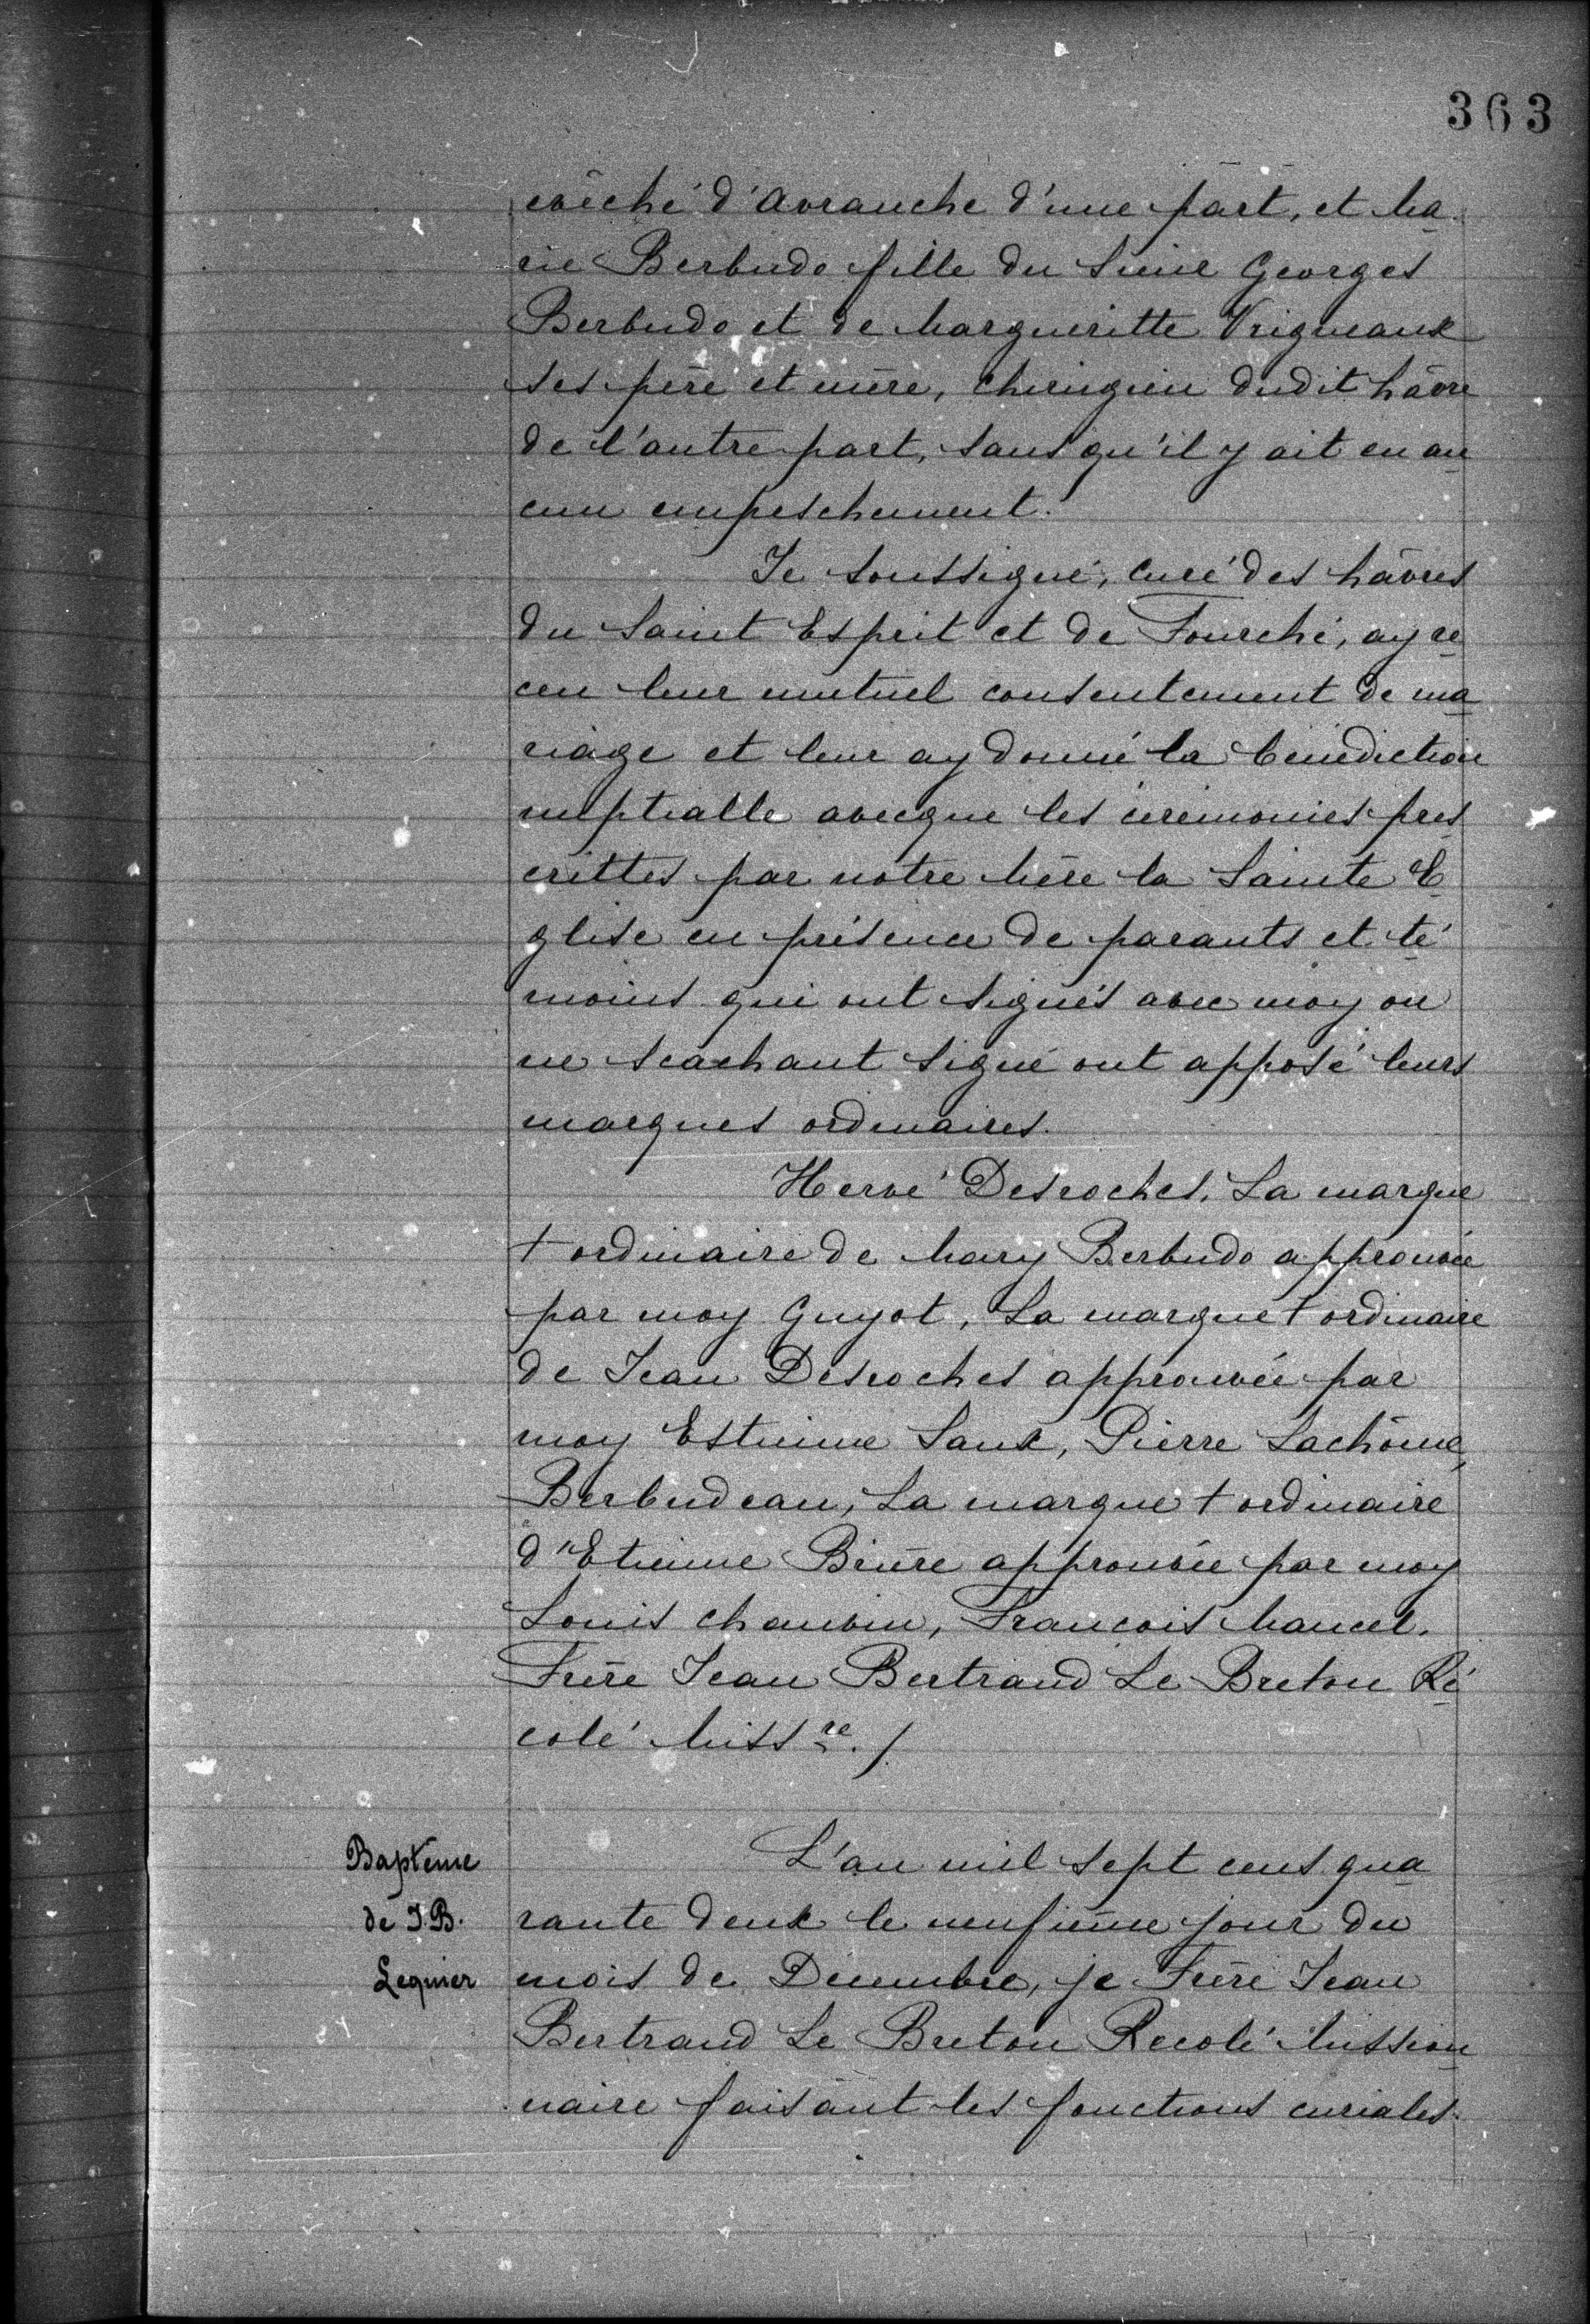 363
evêché d'Avranche d'une part, et Ma
rie Berbudo fille du Sieur Georges
Berbudo et de Margueritte Vrigneaux
ses père et mère, chirugien dudit hâvre
de l'autre part, sans qu'il y ait eu au
cun empeschement.
Je soussigné, curé des hâvres
du Saint Esprit et de Fourché, ay re
ceu leur mutuel consentement de ma
riage et leur ay donné la bénédiction
nuptialle avecque les cérémonies pres
crittes par notre Mère la Sainte E
glise en présence de parants et té
moins qui ont signés avec moy ou
ne scachant signé ont apposé leurs
marques ordinaires.
Hervé Desroches. La marque
+ ordinaire de Mary Berbudo approuvée
par moy Guyot, La marque + ordinaire
de Jean Desroches approuvée par
moy Estienne Saux, Pierre Lachôme,
Berbudeau, La marque + ordinaire
d'Etienne Brière approuvée par moy
Louis Chauvin, Francois Mancel.
Frère Jean Bertrand Le Breton Ré
colé Miss re. /.
Baptême
de J.B.
Lequier
L'an mil sept cens qua
rante deux le neufième jour du
mois de Décembre, je Frère Jean
Bertrand Le Breton Recolé Mission
naire faisant les fonctions curiales